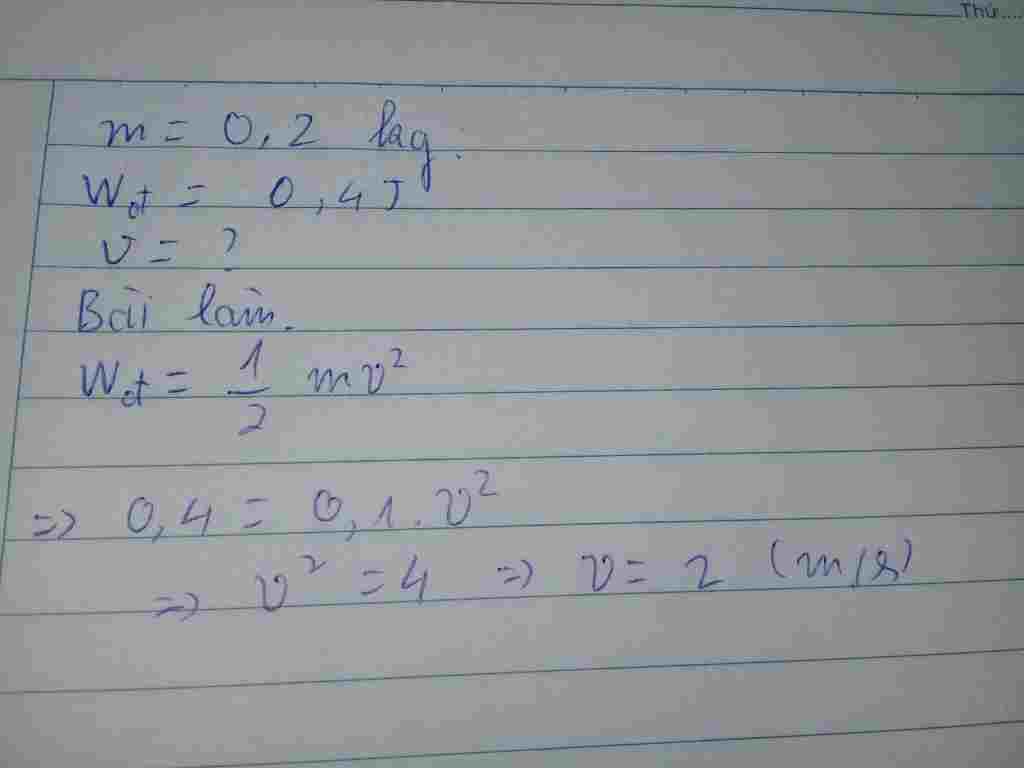 Thứ....
m = 0,2 kg.
Wđt = 0,4 J
v = ?
Bài làm.
Wđt = 1/2 mv²
=> 0,4 = 0,1.v²
=> v² = 4 => v = 2 (m/s)